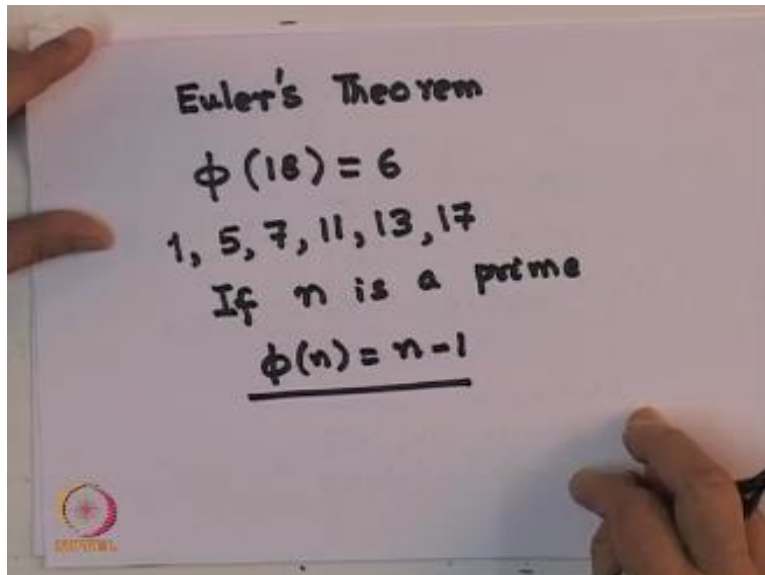 Euler's Theorem
ϕ(18) = 6
1, 5, 7, 11, 13, 17
If n is a prime
ϕ(n) = n-1